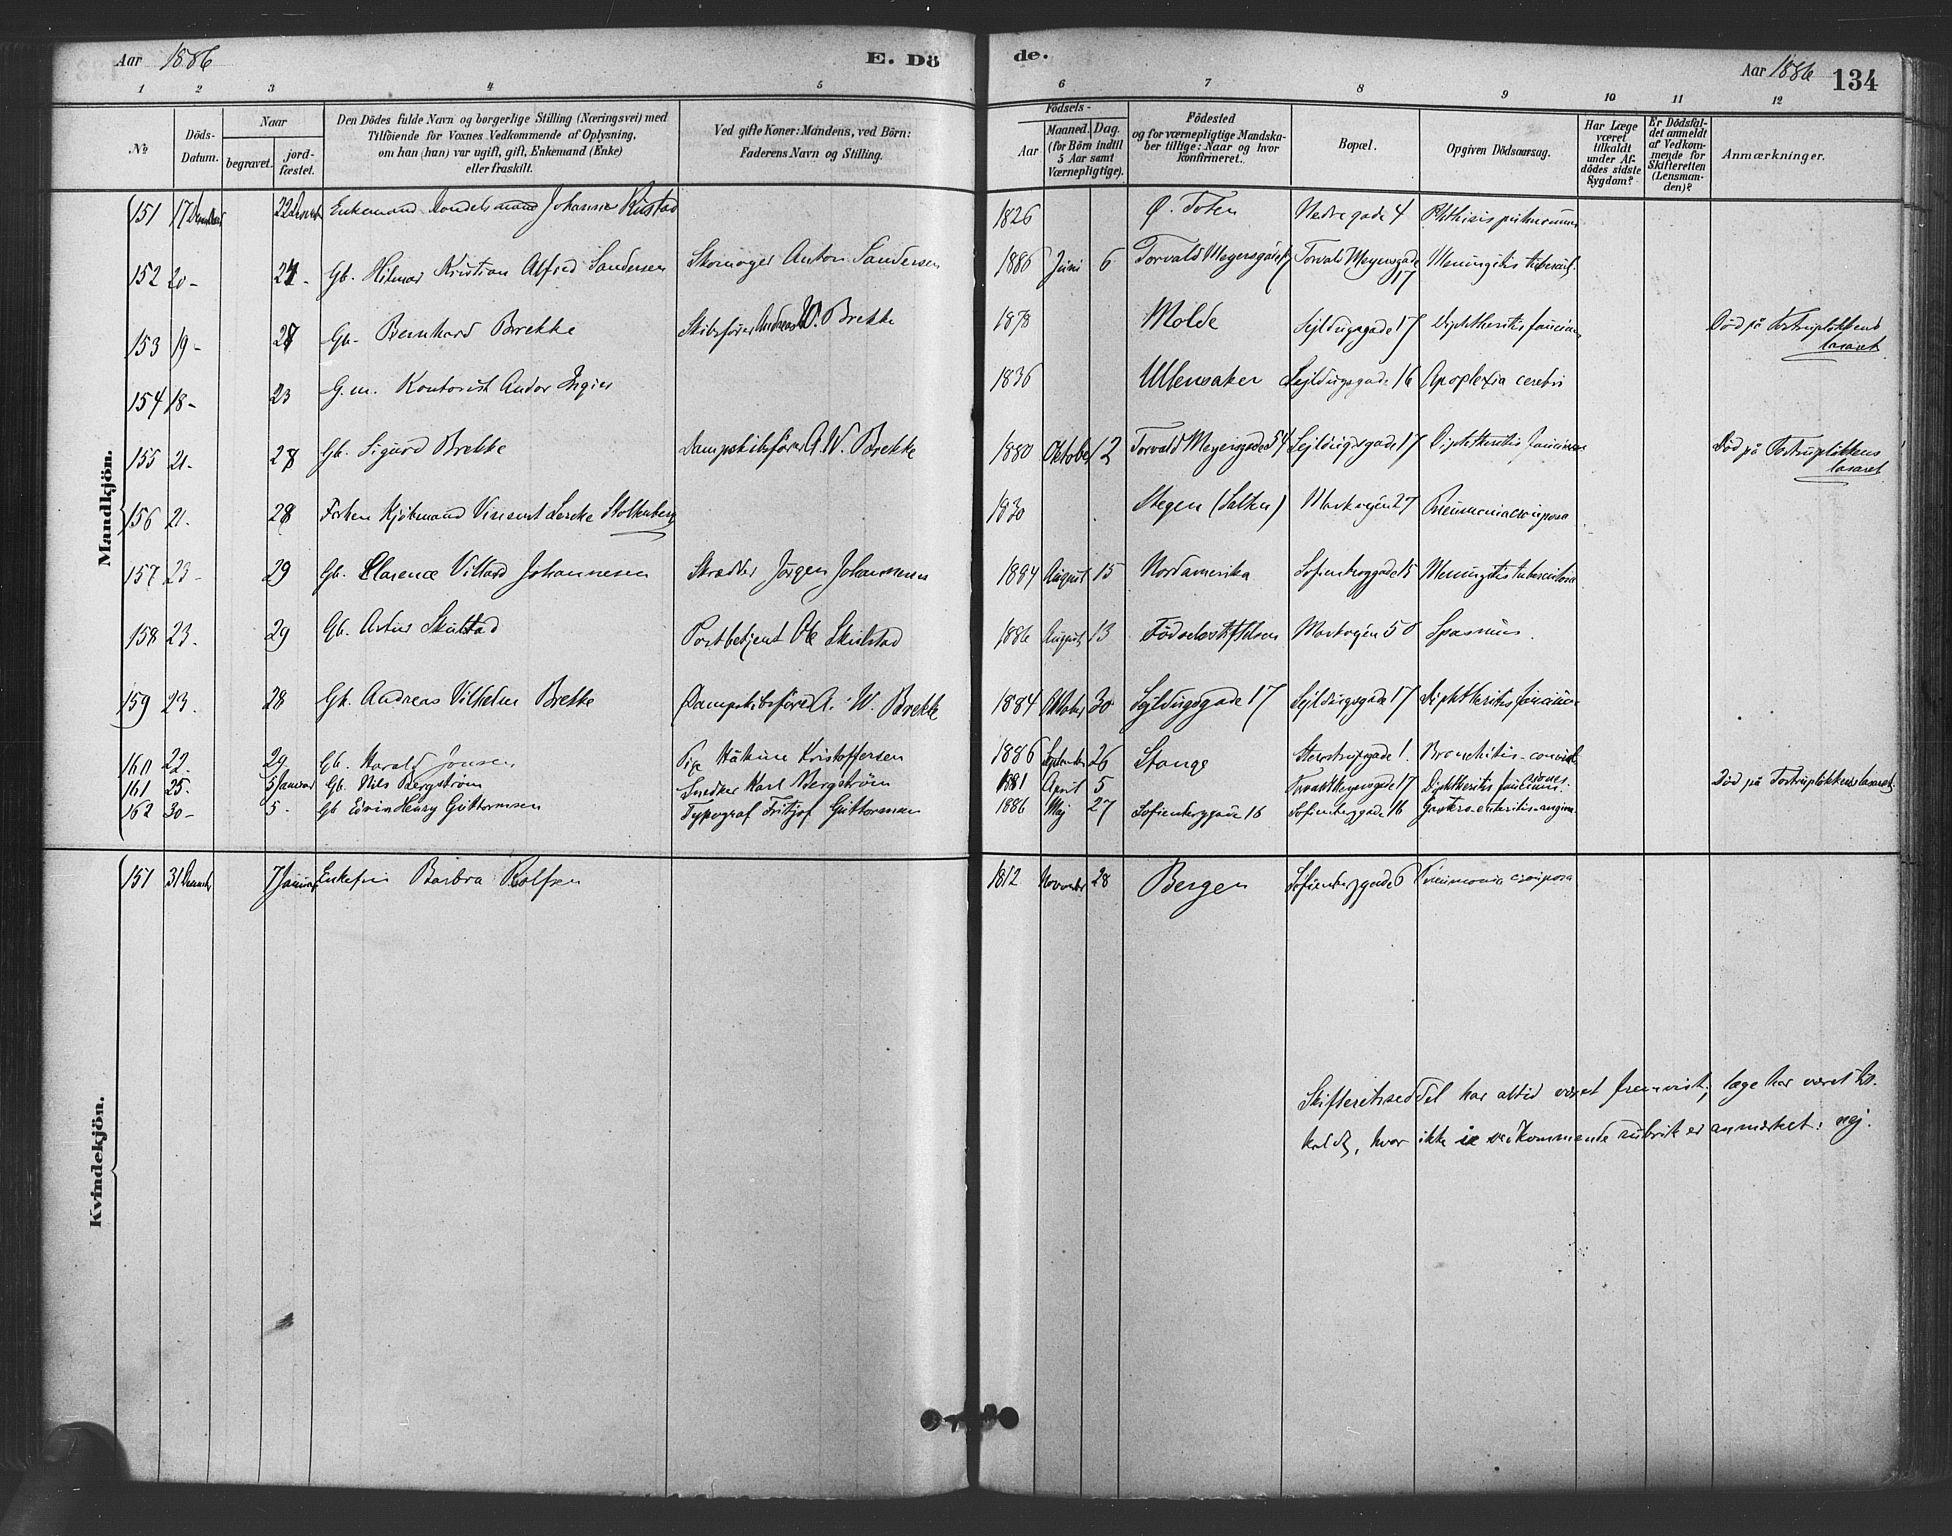 Aar 1886 E. Dö de. Aar 1886 134
1 2 3 4 5 6 7 8 9 10 11 12
No
Döds-Datum.
Naar
begravet. jordfæstet.
Den Dödes fulde Navn og borgerlige Stilling (Næringsvei) med
Tilföiende for Voxnes Vedkommende af Oplysning,
om han (hun) var ugift, gift, Enkemand (Enke)
eller fraskilt.
Ved gifte Koner: Mandens, ved Börn:
Faderens Navn og Stilling.
Födsels-
Aar
Maaned. Dag.
(for Börn indtil
5 Aar samt
Værnepligtige).
Födested
og for værnepligtige Mandskaber
tillige: Naar og hvor
konfirmeret.
Bopæl.
Opgiven Dödsaarsag.
Har Læge
været
tilkaldt
under Afdödes
sidste
Sygdom?
Er Dödsfaldet
anmeldt
af Vedkommende
for
Skifteretten
(Lensmanden)?
Anmærkninger.
Mandkjön.
151 17 December 22 December Enkemand Handelsmand Johannes Rustad 1826 Ø. Toten Nedregade 4 Phthisis pulmonum
152 20 - 24 - Gb. Hilmar Kristian Alfred Sandersen Skomager Anton Sandersen 1886 Juni 6 Torvald Meyersgade 17 Torvald Meyersgade 17 Meningitis tubercul.
153 19 - 27 Gb. Bernhard Brekke Skibsfører Andreas W. Brekke 1878 Molde Sejldugsgade 17 Diphtheritis faucium Død på Tostrupløkkens lasaret
154 18 - 23 G.m. Kontorist Andor 1836 Ullensaker Sejldugsgade 16 Apoplexia cerebri
155 21 - 28 Gb. Sigurd Brekke Dampskibsfører A. W. Brekke 1880 Oktober 12 Torvald Meyersgade 54 Sejldugsgade 17 Diphtheritis faucium Død på Tostrupløkkens lasaret
156 21. 28 Kjøbmand Vincent Lerche Stoltenberg 1830 Stegen (Salten) Markvejen 27 Pneumonia crouposa
157 23 - 29 Gb. Clarence Villard Johannesen Skrædder Jørgen Johannesen 1884 August 15 Nordamerika Sofienberggade 15 Meningitis tuberculosa
158 23. 29 Gb. Artur Skulstad Postbetjent Ole Skulstad 1886 August 13 Fødselsstiftelsen Markvejen 50 Spasmus.
159 23. 28 Gb. Andreas Vilhelm Brekke Dampskibsfører A. W. Brekke 1884 Oktober 30 Sejldugsgade 17 Sejldugsgade 17 Diphtheritis faucium
160 22. 29 Gb. Harald Jonsen Pige Kristoffersen 1886 September 26 Stange Steenstrupgade 1. Bronchitis - convulsiones.
161 25. 5 Januar Gb. Nils Bergstrøm Snedker Karl Bergstrøm 1881 April 5 Torvald Meyersgade 17 Diphtheritis faucium Død på Tostrupløkkens lasaret.
162 30 - 5. Gb Edvin Henry Guttormsen Typograf Fritjof Guttormsen 1886 Maj 27 Sofienberggade 16 Sofienberggade 16 Gastro-enteritis-angina
Kvindekjön.
151 31 December 7 Januar Enkefru Barbra Rolfsen 1812 November 28 Bergen Sofienberggade 6 Pneumonia crouposa
Skifteretsseddel har altid været fremvist; læge har været til-
kaldt, hvor ikke i vedkommende rubrik er anmærket: nej.